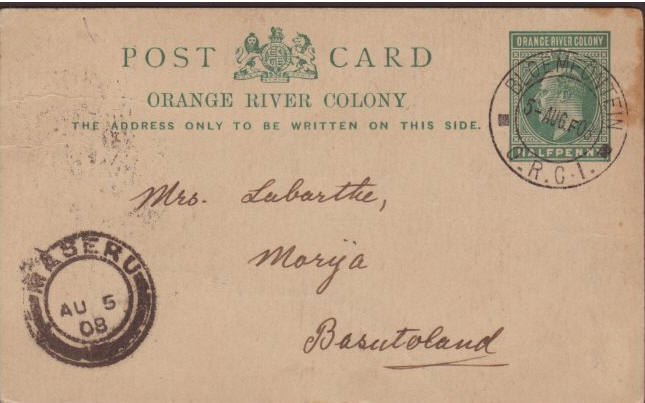 POST CARD
ORANGE RIVER COLONY
THE ADDRESS ONLY TO BE WRITTEN ON THIS SIDE.
ORANGE RIVER COLONY
HALFPENNY
BLOEMFONTEIN
5-AUG.08
O.R.C.1.
Mrs. Labarthe,
Morija
Basutoland
MASERU
AU 5
08